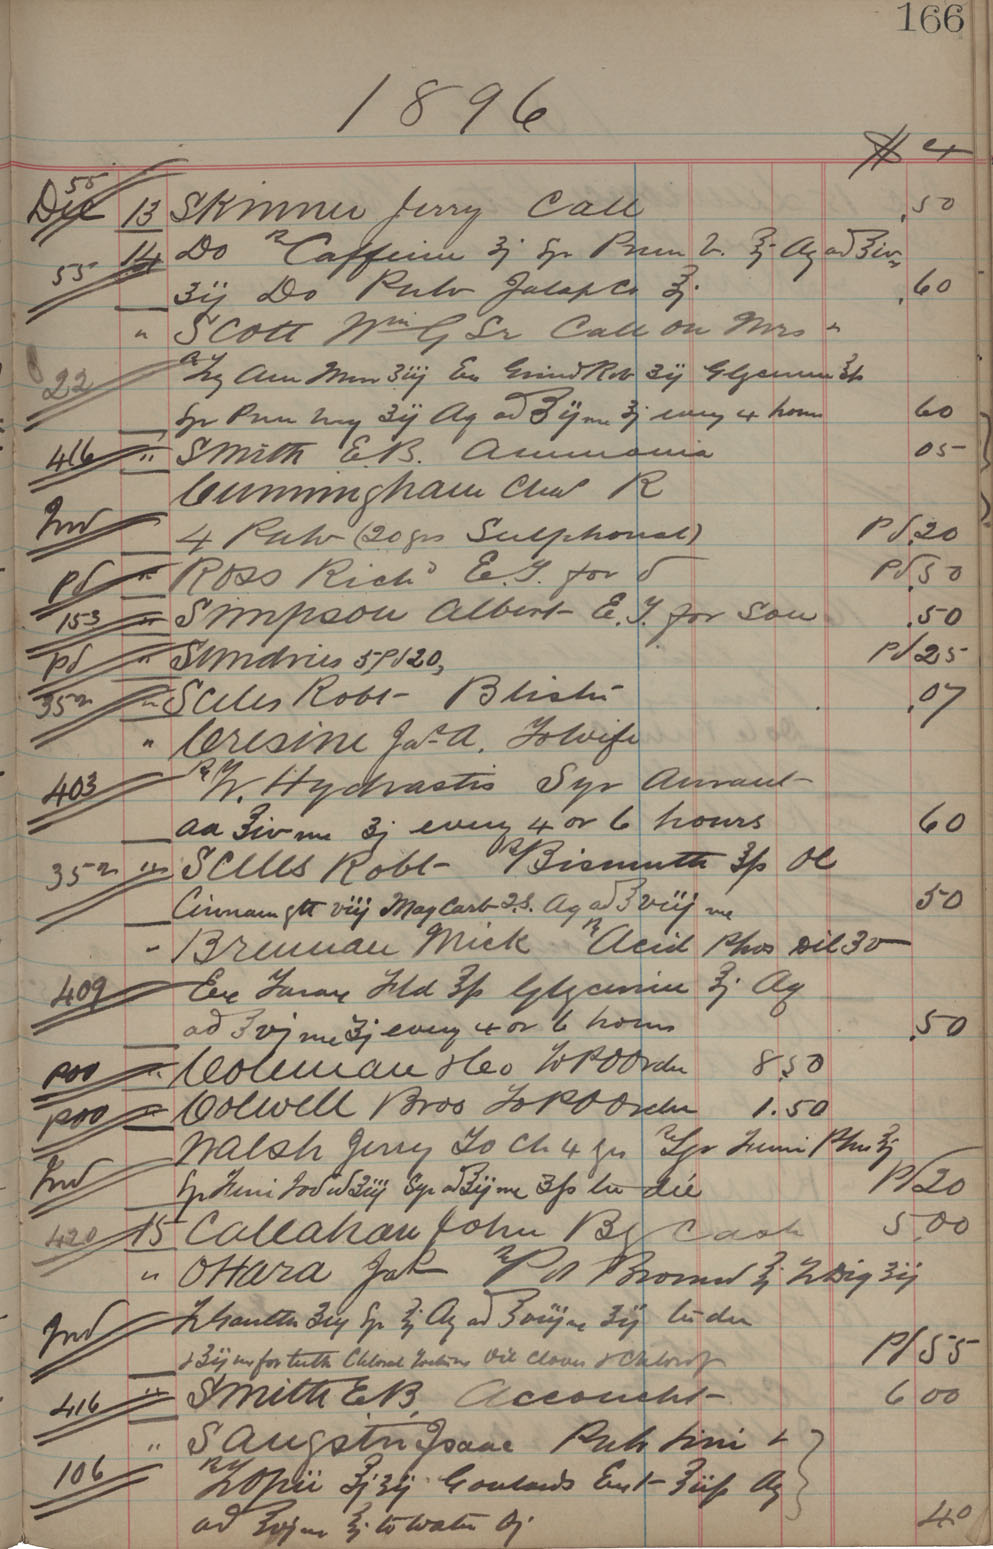 166
1896
$ c
Dec 55 13 Skinner Jerry Call .50
14 Do Rx Caffeine ʒj Syr Prun V. ℥j Aq ad ℥iv
55 ʒij Do Pulv Jalap Co ℥j .60
" Scott Wm G Sr Call on Mrs "
22 Rx Am Mur ʒiij Ex Grind Rob ʒij Glycerin ℥ss
Syr Prun Virg ʒij Aq ad ℥ij me ʒj every 4 hours 60
416 " Smith E.B. Ammonia 05
Cunningham Chas R
Ind 4 Pulv (20 grs Sulphonal) Pd .20
Pd " Ross Richd E.T. for d Pd .50
153 " Simpson Albert E.T. for Son .50
Pd " Sundries 5 Pd 20, Pd 25
352 " Scles Robt Blister .07
" Cresine Jas A. To Wife
403 Rx Tr. Hydrastis Syr Aurant
aa ℥iv me ʒj every 4 or 6 hours 60
352 " Scles Robt Rx Bismuth ℥ss Ol
Cinnam gtt viij Mag Carb Q.S. Aq ad ℥viij me 50
" Brennan Mick Rx Acid Phos Dil ʒv
409 Ex Tarax Fld ℥ss Glycerin ℥j Aq
ad ℥vj me ʒj every 4 or 6 hours .50
POO " Coleman & Co To P O Order 8.50
POO " Colwell Bros To P O Order 1.50
Walsh Jerry To Ch 4 grs Rx Syr Ferri Phos ℥j
Ind Syr Ferri Iod ad ℥iij Syr ad ℥ij me ℥ss ter die Pd 20
420 15 Callahan John By Cash 5.00
" OHara Jas Rx Pot Bromid ℥j Tr Dig ʒij
Ind ad ℥viij me ʒij ter die
& ʒij me for teeth Chloral Iodine Oil Cloves & Chlorof Pd 55
416 " Smith E.B. Account 6 00
" Sangster Isaac Pulv
106 Rx Tr Opii Goulards Ext Aq
ad ℥vj me ℥j to Water Oj 40